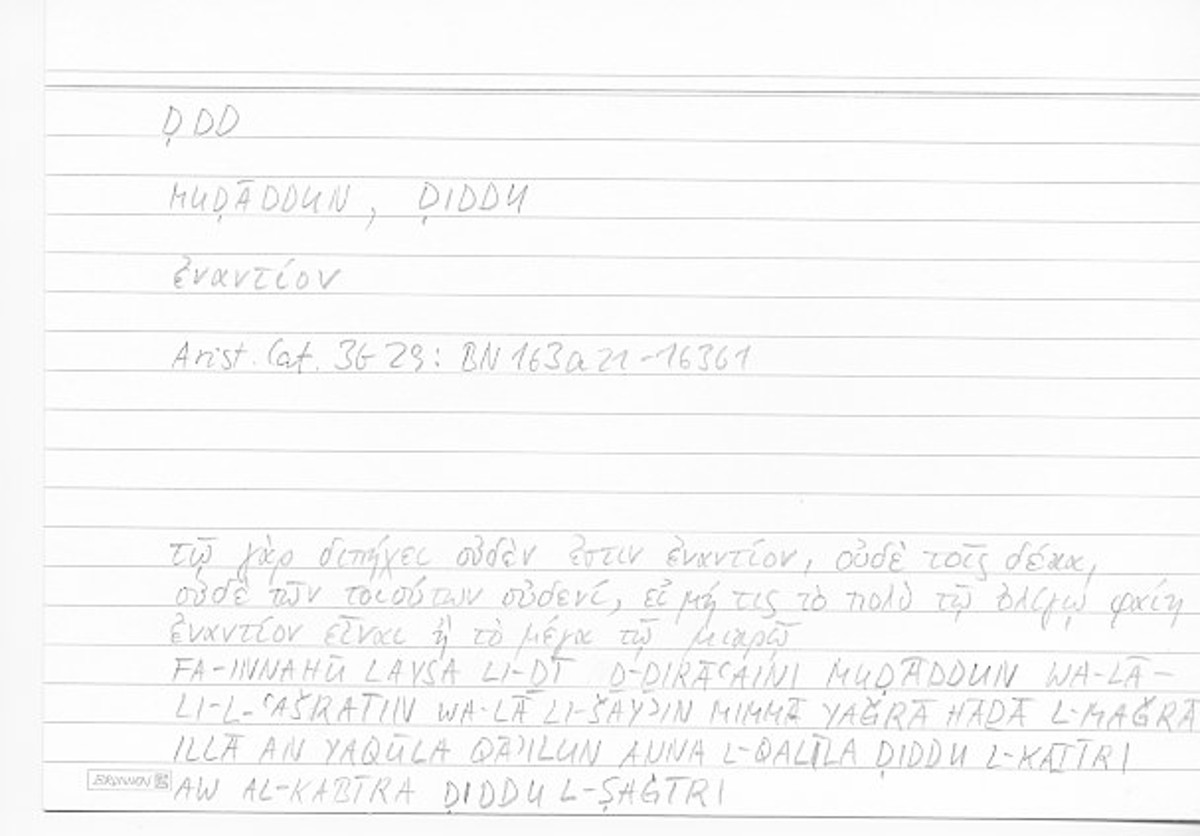 ḌDD
MUḌĀDDUN, ḌIDDU
ἐναντίον
Arist. Cat. 3b29: BN 163a21-163b1
τῷ γὰρ διπήχει οὐδέν ἐστιν ἐναντίον, οὐδὲ τοῖς δέκα,
οὐδὲ τῶν τοιούτων οὐδενί, εἰ μή τις τὸ πολὺ τῷ ὀλίγῳ φαίη
ἐναντίον εἶναι ἢ τὸ μέγα τῷ μικρῷ
FA-INNAHŪ LAYSA LI-ḎĪ Ḏ-ḎIRĀʿAINI MUḌĀDDUN WA-LĀ-
LI-L-ʿAŠRATIN WA-LĀ LI-ŠAYʾIN MIMMĀ YAǦRĀ HĀḎĀ L-MAǦRĀ
ILLĀ AN YAQŪLA QĀʾILUN ANNA L-QALĪLA ḌIDDU L-KAṮĪRI
AW AL-KABĪRA ḌIDDU L-ṢAĠĪRI
BRUNNEN